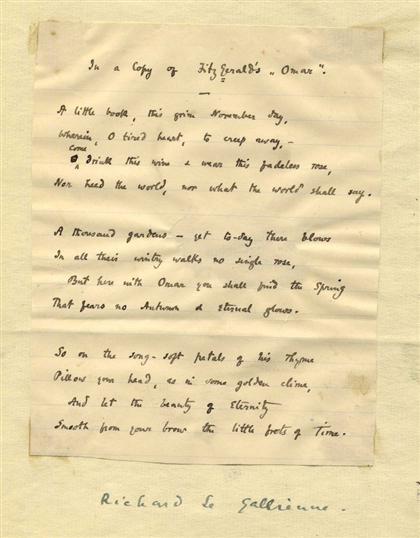 In a Copy of FitzGerald's "Omar".
A little book, this grim November day,
Wherein, O tired heart, to creep away, –
come
Drink this wine & wear this fadeless rose,
Nor heed the world, nor what the world shall say.
A thousand gardens – yet to-day there blows
In all their wintry walks no single rose,
But here with Omar you shall find the Spring
That fears no Autumn & eternal glows.
So on the song-soft petals of his rhyme
Pillow your head, as in some golden clime,
And let the beauty of Eternity
Smooth from your brow the little frets of Time.
Richard Le Gallienne.